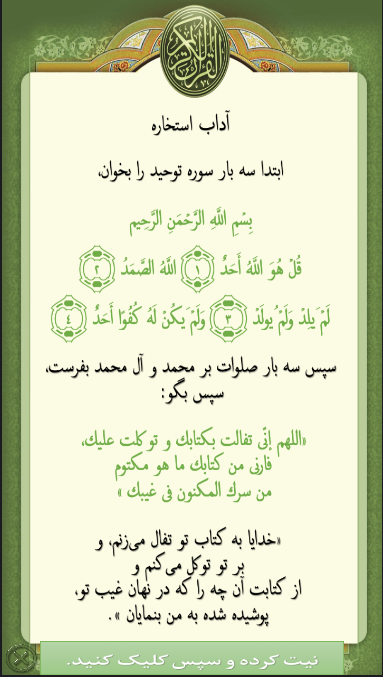 القرآن الكريم
آداب استخاره
ابتدا سه بار سوره توحید را بخوان،
بِسْمِ اللَّهِ الرَّحْمَنِ الرَّحِيمِ
قُلْ هُوَ اللَّهُ أَحَدٌ ﴿١﴾ اللَّهُ الصَّمَدُ ﴿٢﴾
لَمْ يَلِدْ وَلَمْ يُولَدْ ﴿٣﴾ وَلَمْ يَكُنْ لَهُ كُفُوًا أَحَدٌ ﴿٤﴾
سپس سه بار صلوات بر محمد و آل محمد بفرست،
سپس بگو:
«اللهم إنّی تفالت بکتابك و توکلت علیك،
فارنی من کتابك ما هو مکتوم
من سرك المکنون فی غیبك »
«خدایا به کتاب تو تفال می‌زنم، و
بر تو توکل می‌کنم و
از کتابت آن چه را که در نهان غیب تو،
پوشیده شده به من بنمایان ».
نیت کرده و سپس کلیک کنید.